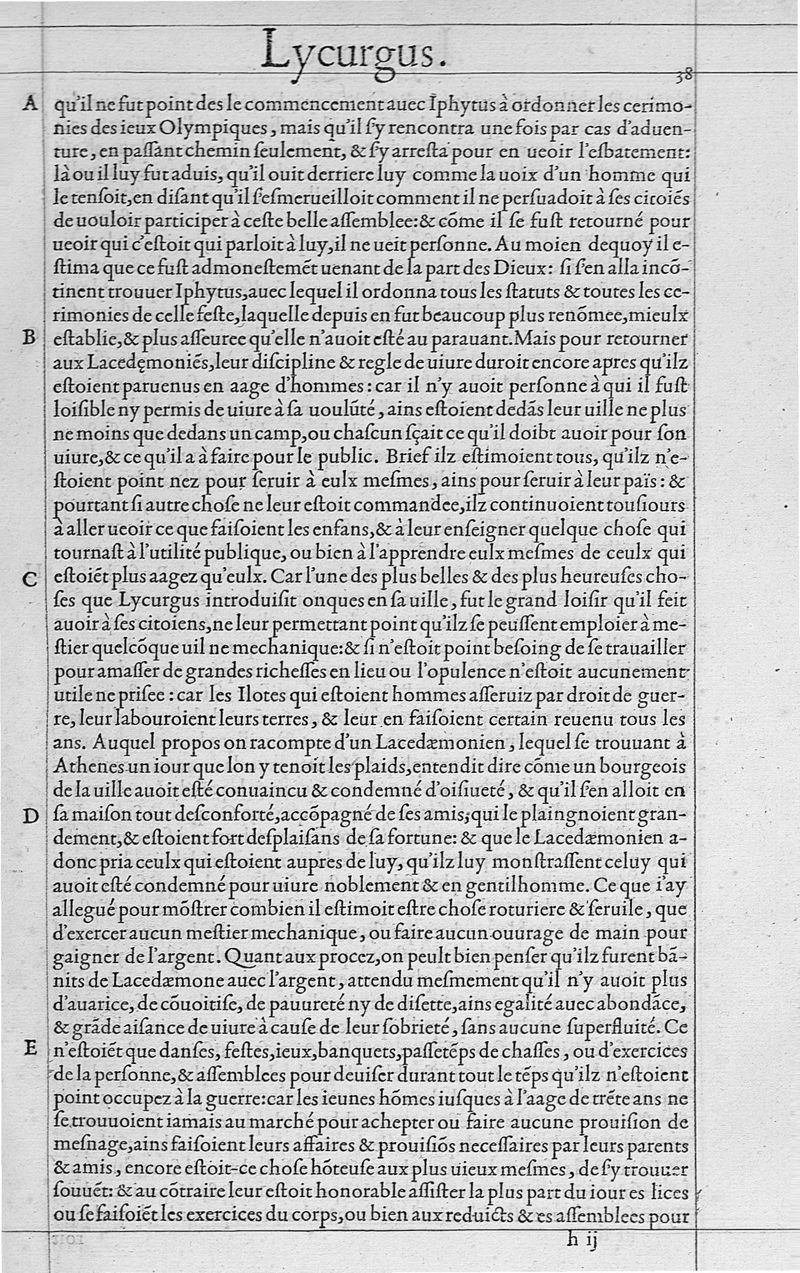 Lycurgus.
38
A qu'il ne fut point des le commencement auec Iphytus à ordonner les cerimo-
nies des ieux Olympiques, mais qu'il ſ'y rencontra une fois par cas d'aduen-
ture, en paſſant chemin ſeulement, & ſ'y arreſta pour en ueoir l'eſbatement:
là ou il luy fut aduis, qu'il ouit derriere luy comme la uoix d'un homme qui
le tenſoit, en diſant qu'il ſ'eſmerueilloit comment il ne perſuadoit à ſes citoiẽs
de uouloir participer à ceſte belle aſſemblee: & cõme il ſe fuſt retourné pour
ueoir qui c'eſtoit qui parloit à luy, il ne ueit perſonne. Au moien dequoy il e-
ſtima que ce fuſt admoneſtemẽt uenant de la part des Dieux: ſi ſ'en alla incõ-
tinent trouuer Iphytus, auec lequel il ordonna tous les ſtatuts & toutes les ce-
rimonies de celle feſte, laquelle depuis en fut beaucoup plus renõmee, mieulx
B eſtablie, & plus aſſeuree qu'elle n'auoit eſté au parauant. Mais pour retourner
aux Lacedęmoniẽs, leur diſcipline & regle de uiure duroit encore apres qu'ilz
eſtoient paruenus en aage d'hommes: car il n'y auoit perſonne à qui il fuſt
loiſible ny permis de uiure à ſa uoulũté, ains eſtoient dedãs leur uille ne plus
ne moins que dedans un camp, ou chaſcun ſçait ce qu'il doibt auoir pour ſon
uiure, & ce qu'il a à faire pour le public. Brief ilz eſtimoient tous, qu'ilz n'e-
ſtoient point nez pour ſeruir à eulx meſmes, ains pour ſeruir à leur païs: &
pourtant ſi autre choſe ne leur eſtoit commandee, ilz continuoient touſiours
à aller ueoir ce que faiſoient les enfans, & à leur enſeigner quelque choſe qui
tournaſt à l'utilité publique, ou bien à l'apprendre eulx meſmes de ceulx qui
C eſtoiẽt plus aagez qu'eulx. Car l'une des plus belles & des plus heureuſes cho-
ſes que Lycurgus introduiſit onques en ſa uille, fut le grand loiſir qu'il feit
auoir à ſes citoiens, ne leur permettant point qu'ilz ſe peuſſent emploier à me-
ſtier quelcõque uil ne mechanique: & ſi n'eſtoit point beſoing de ſe trauailler
pour amaſſer de grandes richeſſes en lieu ou l'opulence n'eſtoit aucunement
utile ne priſee: car les Ilotes qui eſtoient hommes aſſeruiz par droit de guer-
re, leur labouroient leurs terres, & leur en faiſoient certain reuenu tous les
ans. Auquel propos on racompte d'un Lacedæmonien, lequel ſe trouuant à
Athenes un iour que lon y tenoit les plaids, entendit dire cõme un bourgeois
de la uille auoit eſté conuaincu & condemné d'oiſiueté, & qu'il ſ'en alloit en
D ſa maiſon tout deſconforté, accõpagné de ſes amis, qui le plaingnoient gran-
dement, & eſtoient fort deſplaiſans de ſa fortune: & que le Lacedæmonien a-
donc pria ceulx qui eſtoient aupres de luy, qu'ilz luy monſtraſſent celuy qui
auoit eſté condemné pour uiure noblement & en gentilhomme. Ce que i'ay
allegué pour mõſtrer combien il eſtimoit eſtre choſe roturiere & ſeruile, que
d'exercer aucun meſtier mechanique, ou faire aucun ouurage de main pour
gaigner de l'argent. Quant aux procez, on peult bien penſer qu'ilz furent bã-
nits de Lacedæmone auec l'argent, attendu meſmement qu'il n'y auoit plus
d'auarice, de cõuoitiſe, de pauureté ny de diſette, ains egalité auec abondãce,
& grãde aiſance de uiure à cauſe de leur ſobrieté, ſans aucune ſuperfluité. Ce
E n'eſtoiẽt que danſes, feſtes, ieux, banquets, paſſetẽps de chaſſes, ou d'exercices
de la perſonne, & aſſemblees pour deuiſer durant tout le tẽps qu'ilz n'eſtoient
point occupez à la guerre: car les ieunes hõmes iuſques à l'aage de trẽte ans ne
ſe trouuoient iamais au marché pour achepter ou faire aucune prouiſion de
meſnage, ains faiſoient leurs affaires & prouiſiõs neceſſaires par leurs parents
& amis, encore eſtoit-ce choſe hõteuſe aux plus uieux meſmes, de ſ'y trouuer
ſouuẽt: & au cõtraire leur eſtoit honorable aſſiſter la plus part du iour es lices
ou ſe faiſoiẽt les exercices du corps, ou bien aux reduicts & es aſſemblees pour
h ij